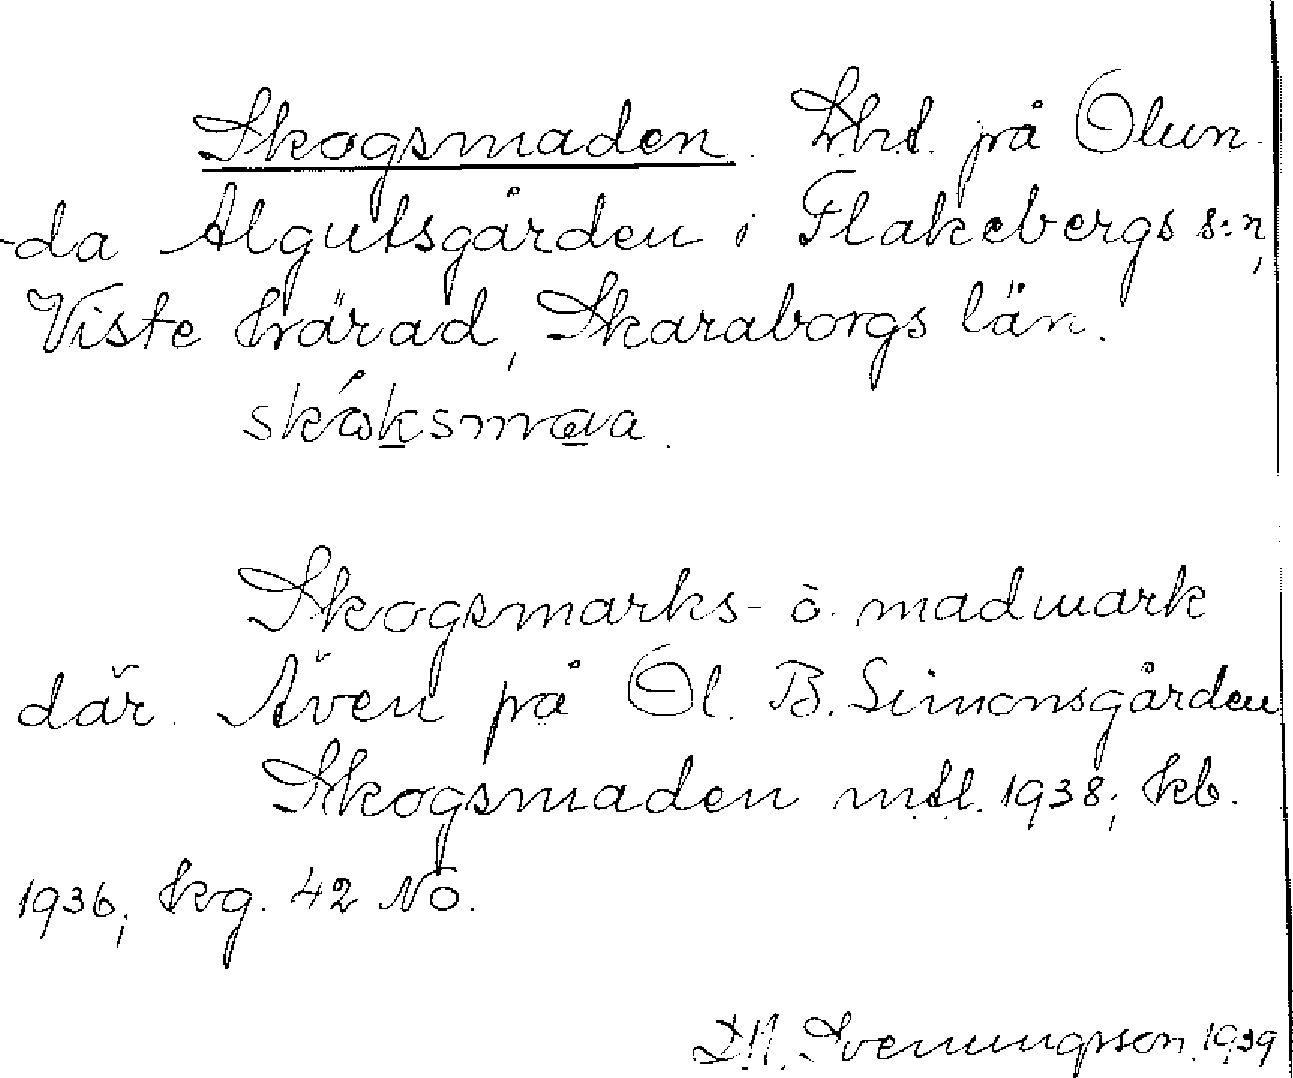 Skogsmaden. Skt. på Ölun-
-da Algutsgården i Flakebergs s:n,
Viste härad, Skaraborgs län.
skåksmava.
Skogsmarks- o. madmark
där. Även på Öl. B. Simonsgården
Skogsmaden mtl. 1938; kb.
1936; kg. 42 NO.
Svenungsson. 1939